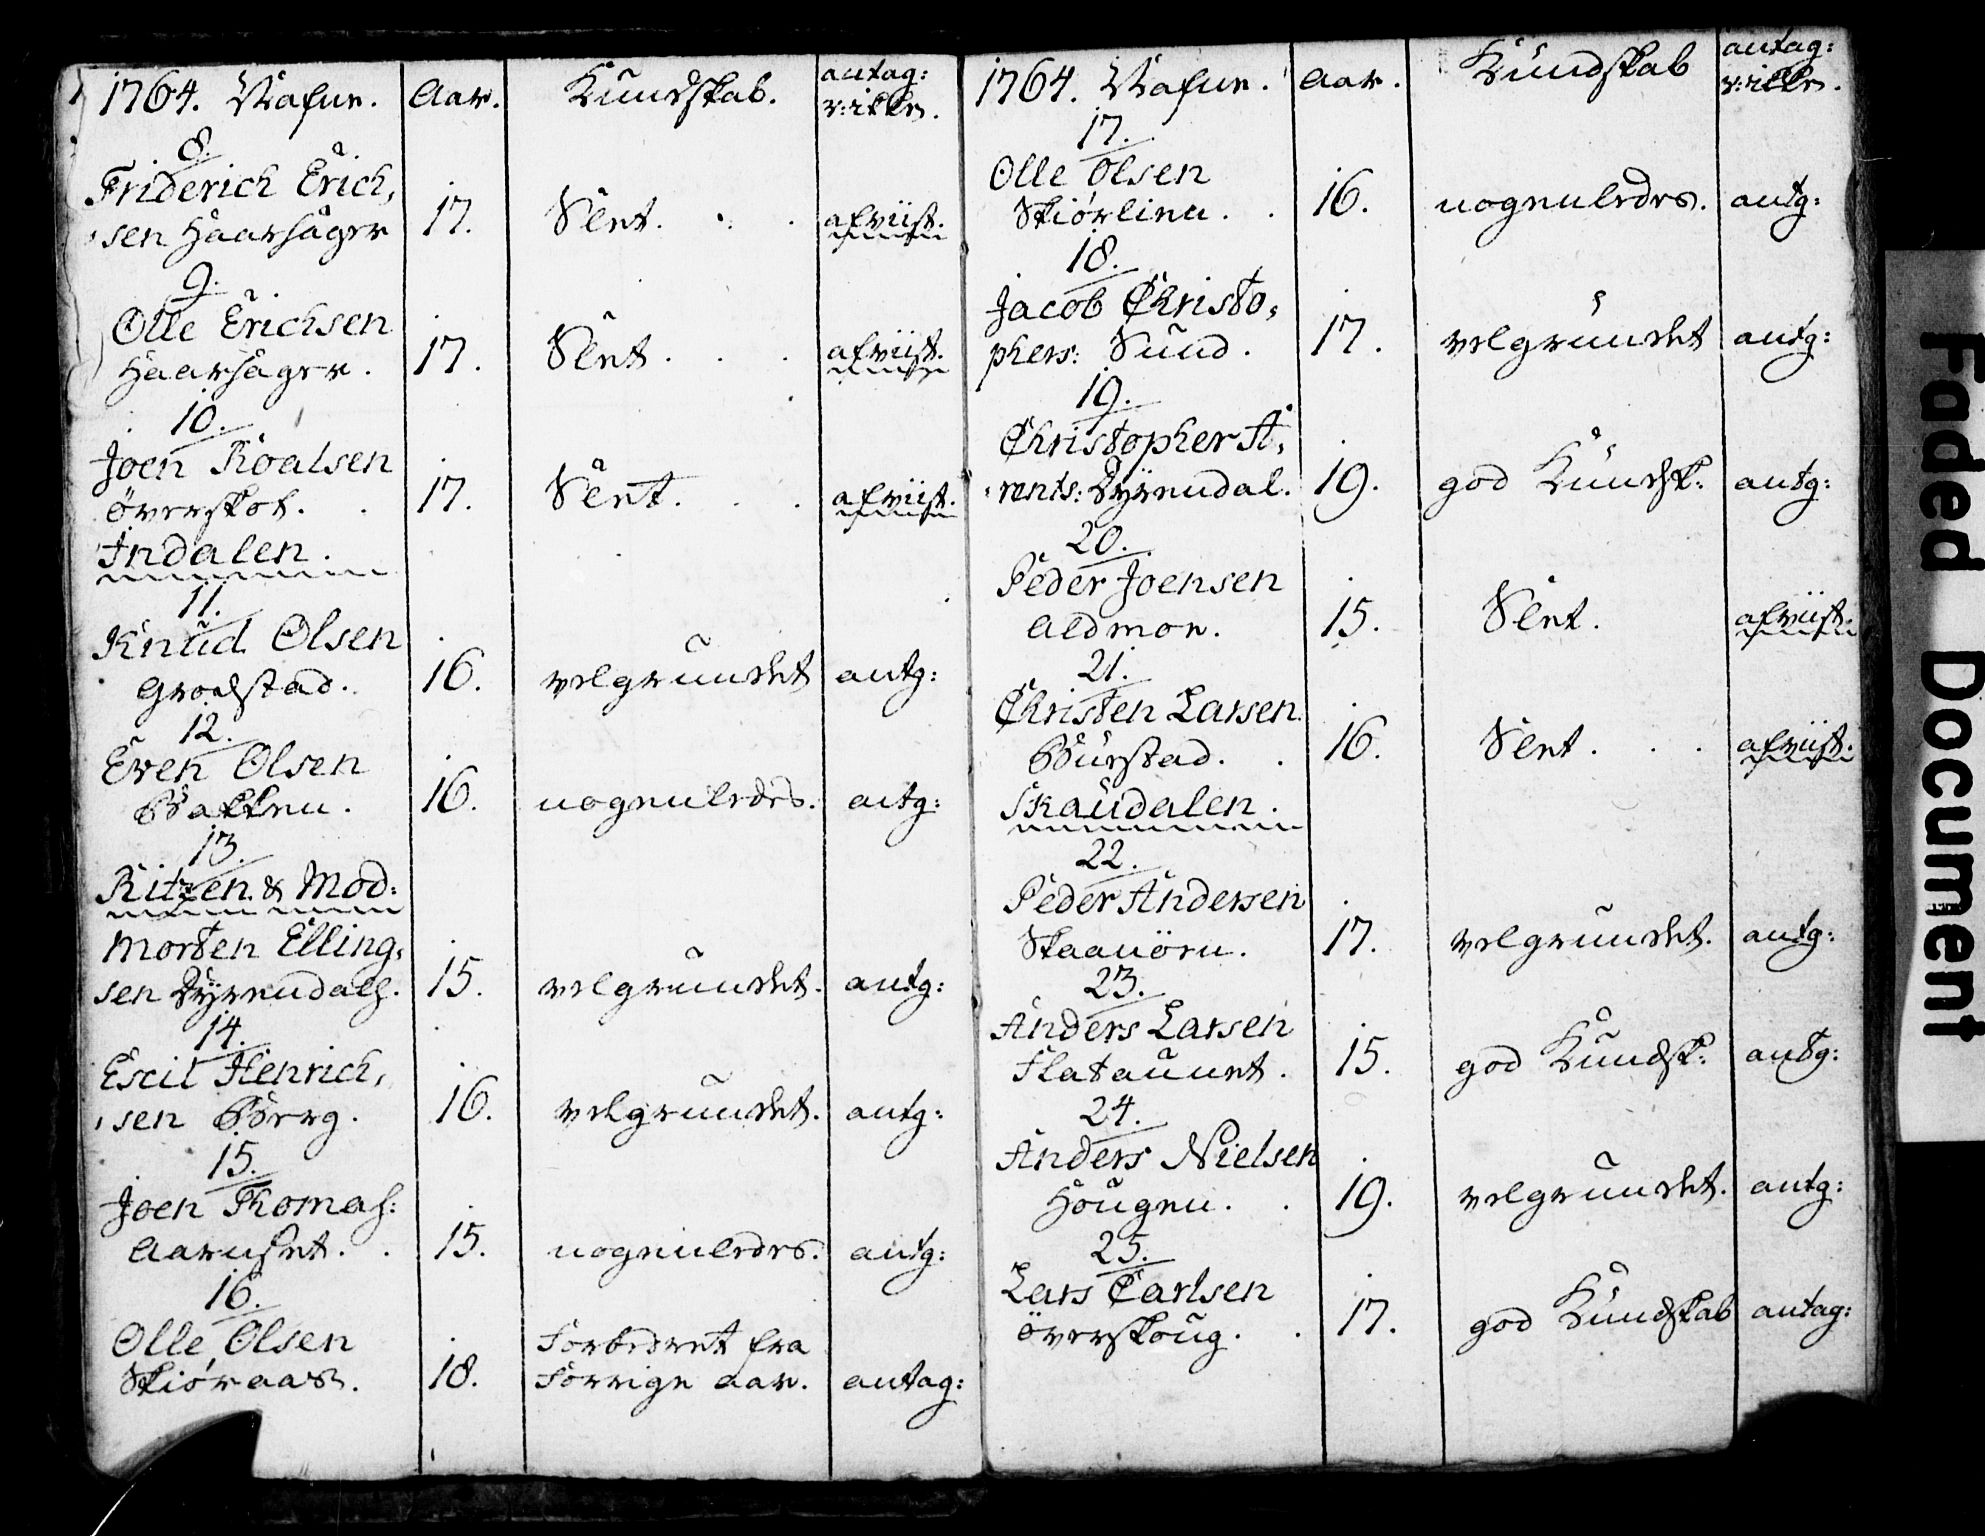 1764. Nafne. Aar. Kundskab. antag: v: ikke.
8.
Friderich Erich,
sen Haarsager 17. Slet. . . afviist.
9.
Olle Erichsen
Haarsager. 17. Slet. . . afviist.
10.
Joen Roalsen
Överskot. . 17. Slet. . . afviist.
Indalen.
11.
Knud Olsen
Grodstad. 16. velgrundet antg:
12.
Even Olsen
Bakken. 16. nogenledes. antg:
13.
Ritzen & Mod:
Morten Elling,
sen Dyrendals. 15. velgrundet. antg:
14.
Escil Henrich,
sen Berg. 16. velgrundet. antg:
15.
Joen Thomas:
Aarnset. . 15. nogenledes. antg:
16.
Olle Olsen Forbedret fra
Skiøraas. 18. Forrige aar. antag:
1764. Nafne. Aar. Kundskab antag: v: ikke.
17.
Olle Olsen
Skiørlien. . 16. nogenledes. antg:
18.
Jacob Christo,
phers: Sund. 17. velgrundet antg:
19.
Christopher A,
rents: Dyrendal. 19. god Kundsk: antg:
20.
Peder Joensen
Aldmoe. 15. Slet. afviist.
21.
Christen Larsen.
Burstad. . 16. Slet. . . afviist.
Skaudalen.
22.
Peder Andersen
Skaanörn. 17. velgrundet. antg:
23.
Anders Larsen
Flataunet. 15. god Kundsk: antg:
24.
Anders Nielsen
Hougen. . 19. velgrundet. antg:
25.
Lars Carlsen
Överskoug. . 17. god Kundskab antag:
Faded Document